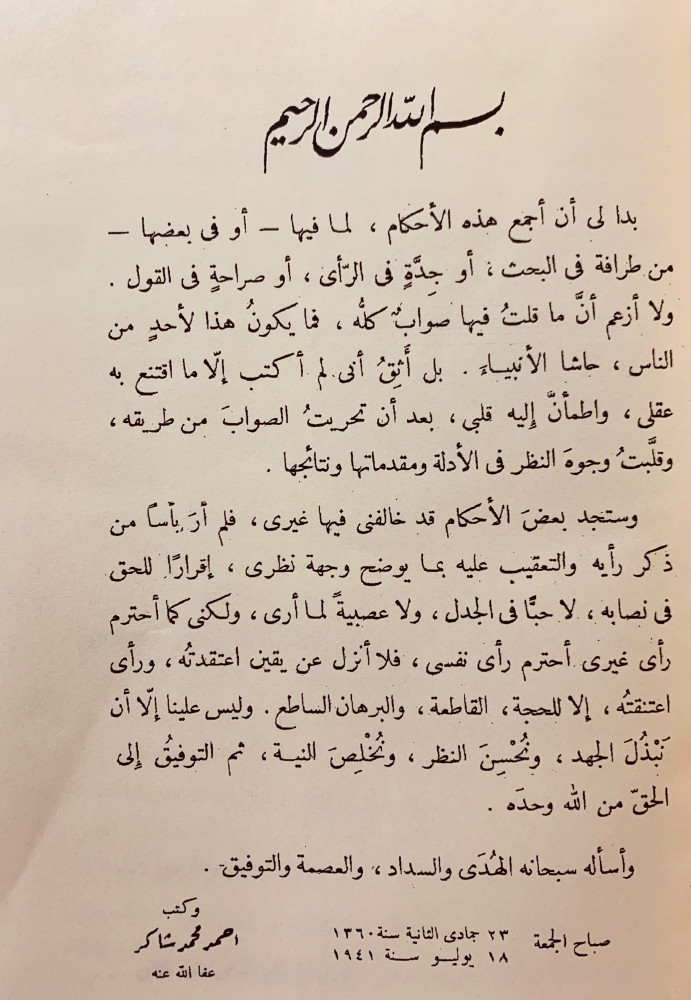 بسم الله الرحمن الرحيم
بدا لى أن أجمع هذه الأحكام ، لما فيها — أو فى بعضها —
من طرافة فى البحث ، أو جِدَّةٍ فى الرّأى ، أو صراحةٍ فى القول .
ولا أزعم أنَّ ما قلتُ فيها صوابٌ كلُّه ، فما يكونُ هذا لأحدٍ من
الناس ، حاشا الأنبياءَ . بل أَثِقُ أنى لم أكتب إلّا ما اقتنع به
عقلى ، واطمأنَّ إليه قلبى ، بعد أن تحريتُ الصوابَ من طريقه ،
وقلَّبتُ وجوهَ النظر فى الأدلة ومقدماتها ونتائجها .
وستجد بعضَ الأحكام قد خالفنى فيها غيرى ، فلم أرَ بأساً من
ذكر رأيه والتعقيب عليه بما يوضح وجهة نظرى ، إقرارًا للحق
فى نصابه ، لا حبًّا فى الجدل ، ولا عصبيةً لما أرى ، ولكنى كما أحترم
رأى غيرى أحترم رأى نفسى ، فلا أنزل عن يقين اعتقدتُه ، ورأى
اعتنقتُه ، إلا للحجة ، القاطعة ، والبرهان الساطع . وليس علينا إلّا أن
نَبْذُلَ الجهد ، ونُحْسِنَ النظر ، ونُخْلِصَ النية ، ثم التوفيقُ إلى
الحقّ من الله وحدَه .
وأسأله سبحانه الهُدَى والسداد ، والعصمة والتوفيق .
صباح الجمعة
٢٣ جمادى الثانية سنة ١٣٦٠
١٨ يوليو سنة ١٩٤١
وكتب
احمد محمد شاكر
عفا الله عنه